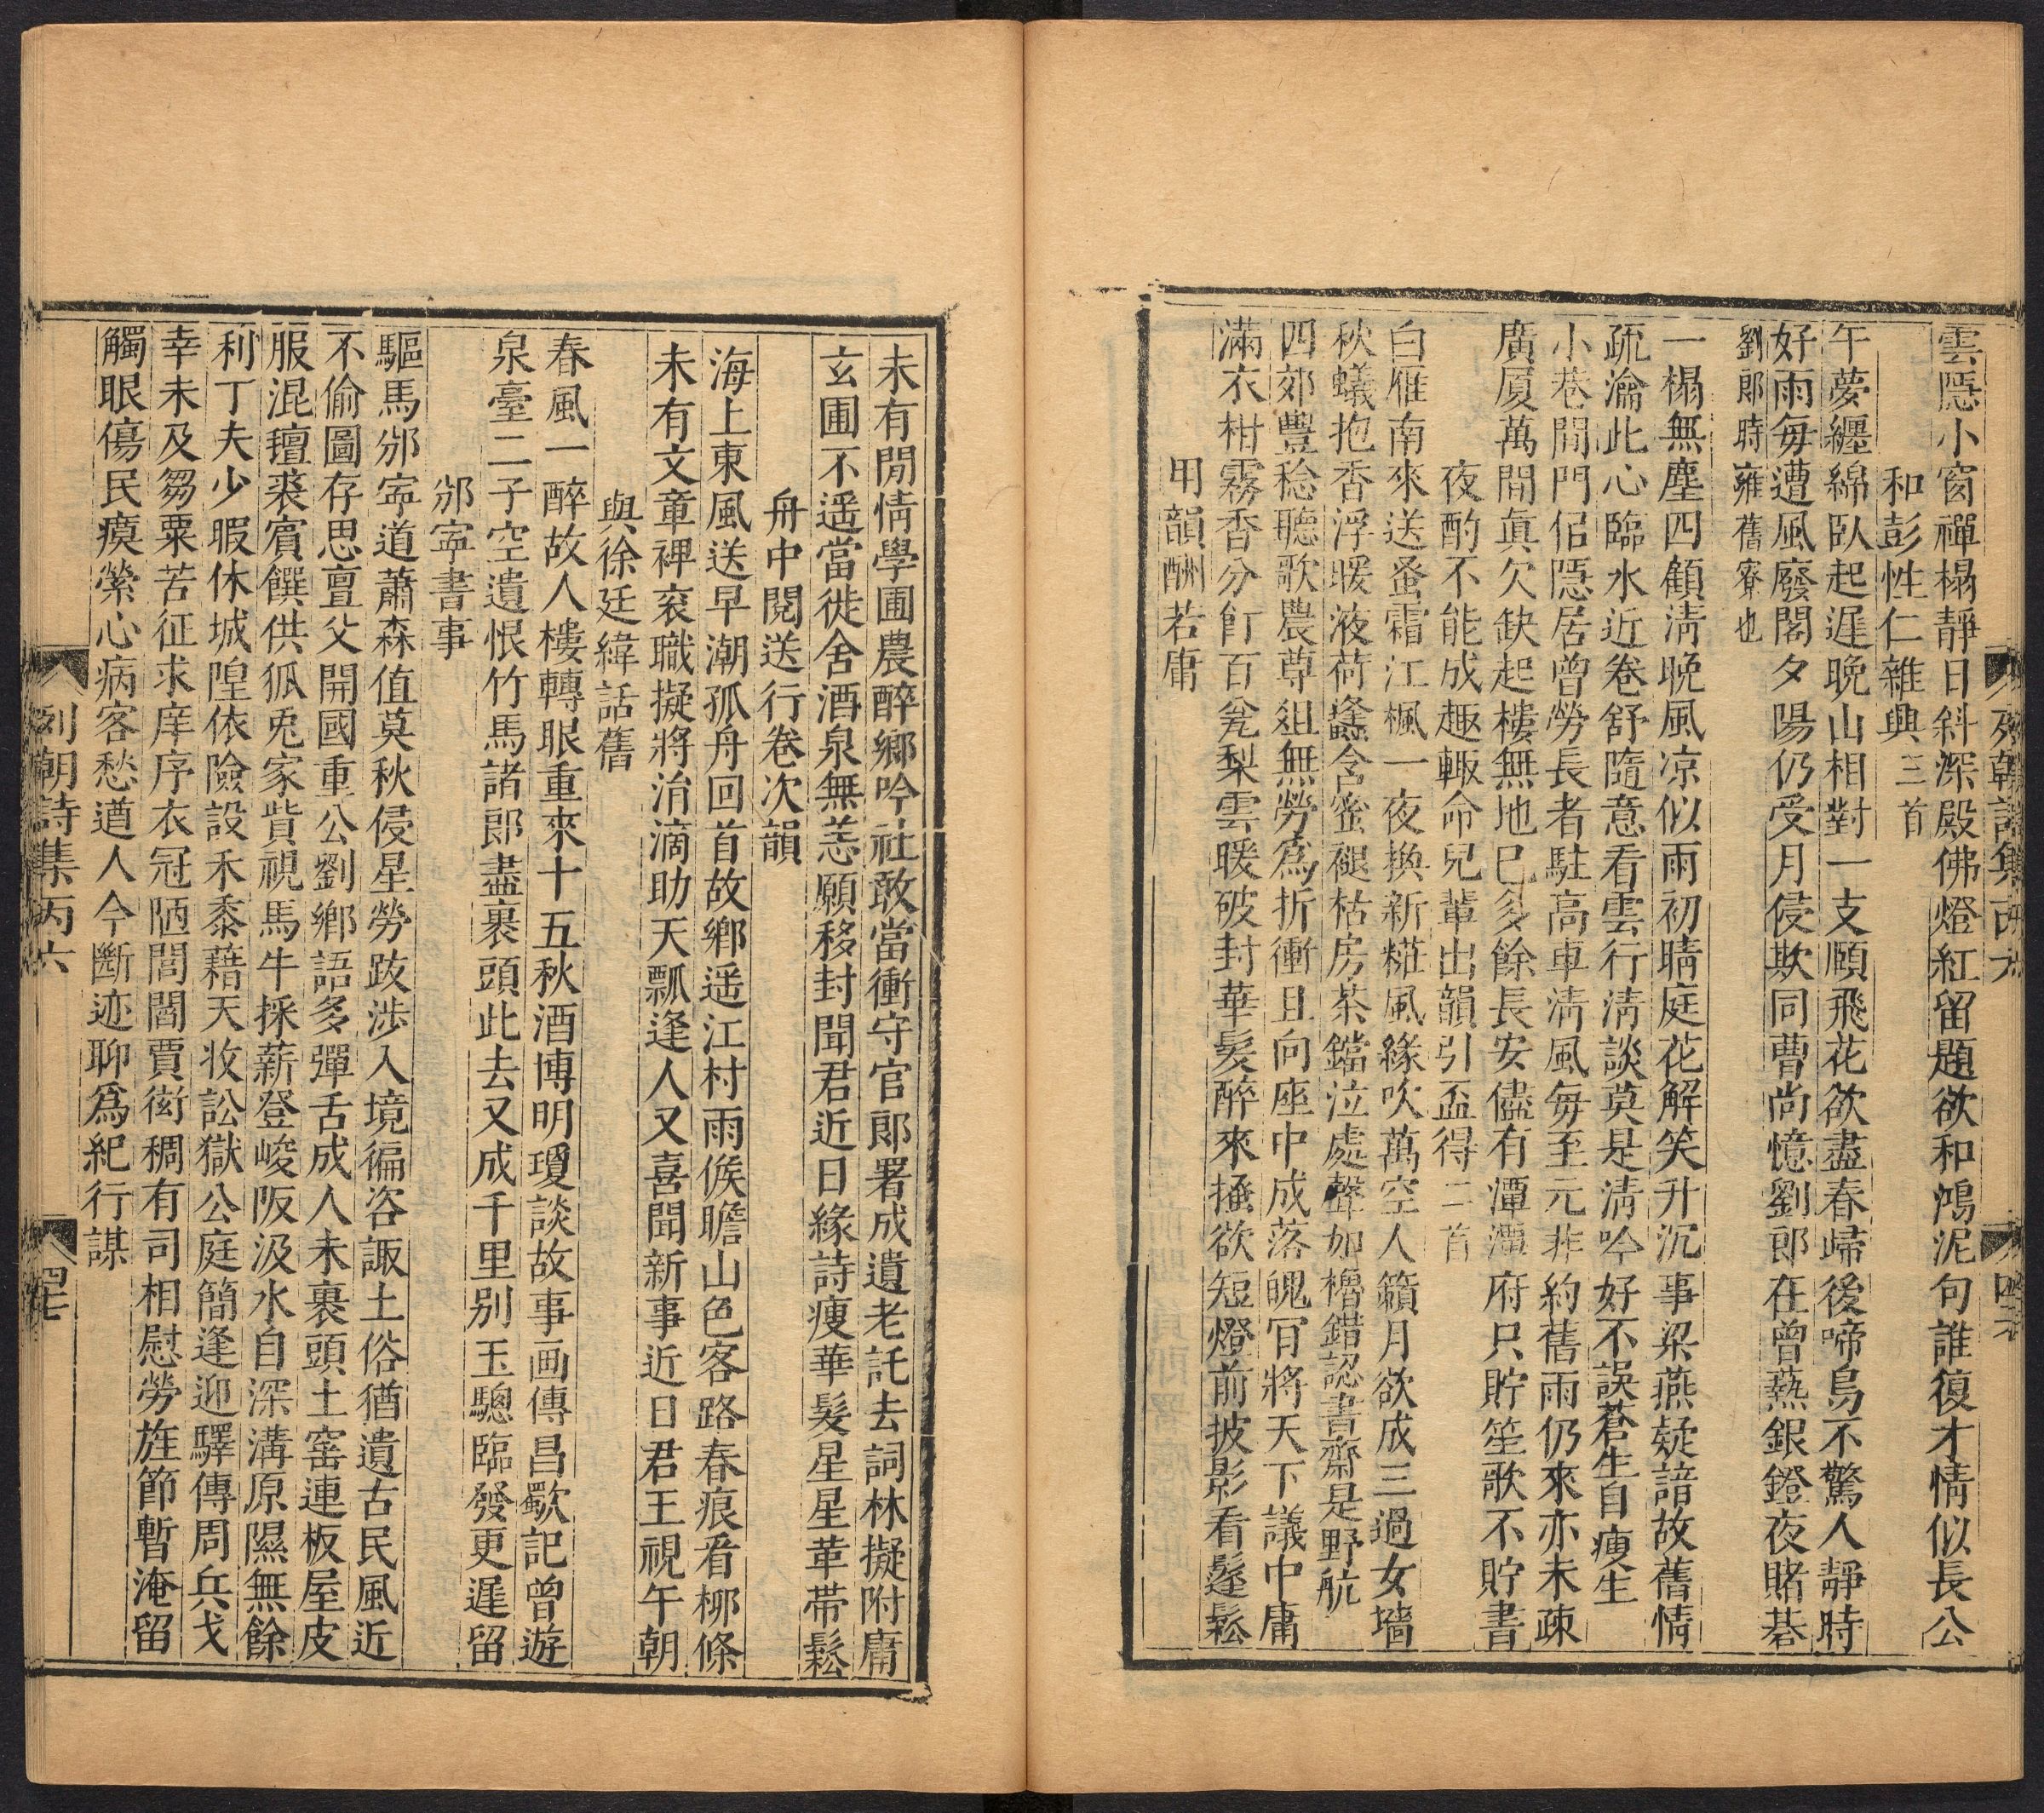 列朝詩集丙六
四六
雲隱小窗禪榻靜日斜深殿佛燈紅留題欲和鴻泥句誰復才情似長公
和彭性仁雜興三首
午夢纏綿臥起遲晚山相對一支頤飛花欲盡春歸後啼鳥不驚人靜時
好雨每遭風廢閣夕陽仍受月侵欺同曹尚憶劉郎在曾爇銀鐙夜賭棊
劉郎時雍舊寮也
一榻無塵四顧清晚風凉似雨初晴庭花解笑升沉事梁燕疑諳故舊情
疏瀹此心臨水近卷舒隨意看雲行清談莫是清吟好不誤蒼生自瘦生
小巷閒門侶隱居曾勞長者駐高車清風每至元非約舊雨仍來亦未疎
廣厦萬間眞欠缺起樓無地已多餘長安儘有潭潭府只貯笙歌不貯書
夜酌不能成趣輙命兒輩出韻引盃得二首
白雁南來送蚤霜江楓一夜換新糚風緣吹萬空人籟月欲成三過女墻
秋蟻抱香浮暖液荷蠭含蜜褪枯房茶鐺泣處聲如櫓錯認書齋是野航
四郊豐稔聽歌農尊俎無勞爲折衝且向座中成落魄肎將天下議中庸
滿衣柑霧香分飣百瓮梨雲暖破封華髮醉來搔欲短燈前披影看鬔鬆
用韻酬若庸
未有閒情學圃農醉鄉吟社敢當衝守官郎署成遺老託去詞林擬附庸
玄圃不遥當徙舍酒泉無恙願移封聞君近日緣詩瘦華髮星星革帶鬆
舟中閱送行卷次韻
海上東風送早潮孤舟回首故鄉遥江村雨候瞻山色客路春痕看柳條
未有文章裨袞職擬將治滴助天瓢逢人又喜聞新事近日君王視午朝
與徐廷緯話舊
春風一醉故人樓轉眼重來十五秋酒博明瓊談故事画傳昌歜記曾遊
泉臺二子空遺恨竹馬諸郎盡裹頭此去又成千里别玉驄臨發更遲留
邠寜書事
驅馬邠寜道蕭森值莫秋侵星勞跋涉入境徧咨諏土俗猶遺古民風近
不偷圖存思亶父開國重公劉鄉語多彈舌成人未裹頭土窑連板屋皮
服混氊裘賓饌供狐兎家貲視馬牛採薪登峻阪汲水自深溝原隰無餘
利丁夫少暇休城隍依險設禾黍藉天收訟獄公庭簡逢迎驛傳周兵戈
幸未及芻粟苦征求庠序衣冠陋閭閻賈衒稠有司相慰勞旌節暫淹留
觸眼傷民瘼縈心病客愁遒人今斷迹聊爲紀行謀
列朝詩集丙六
四七